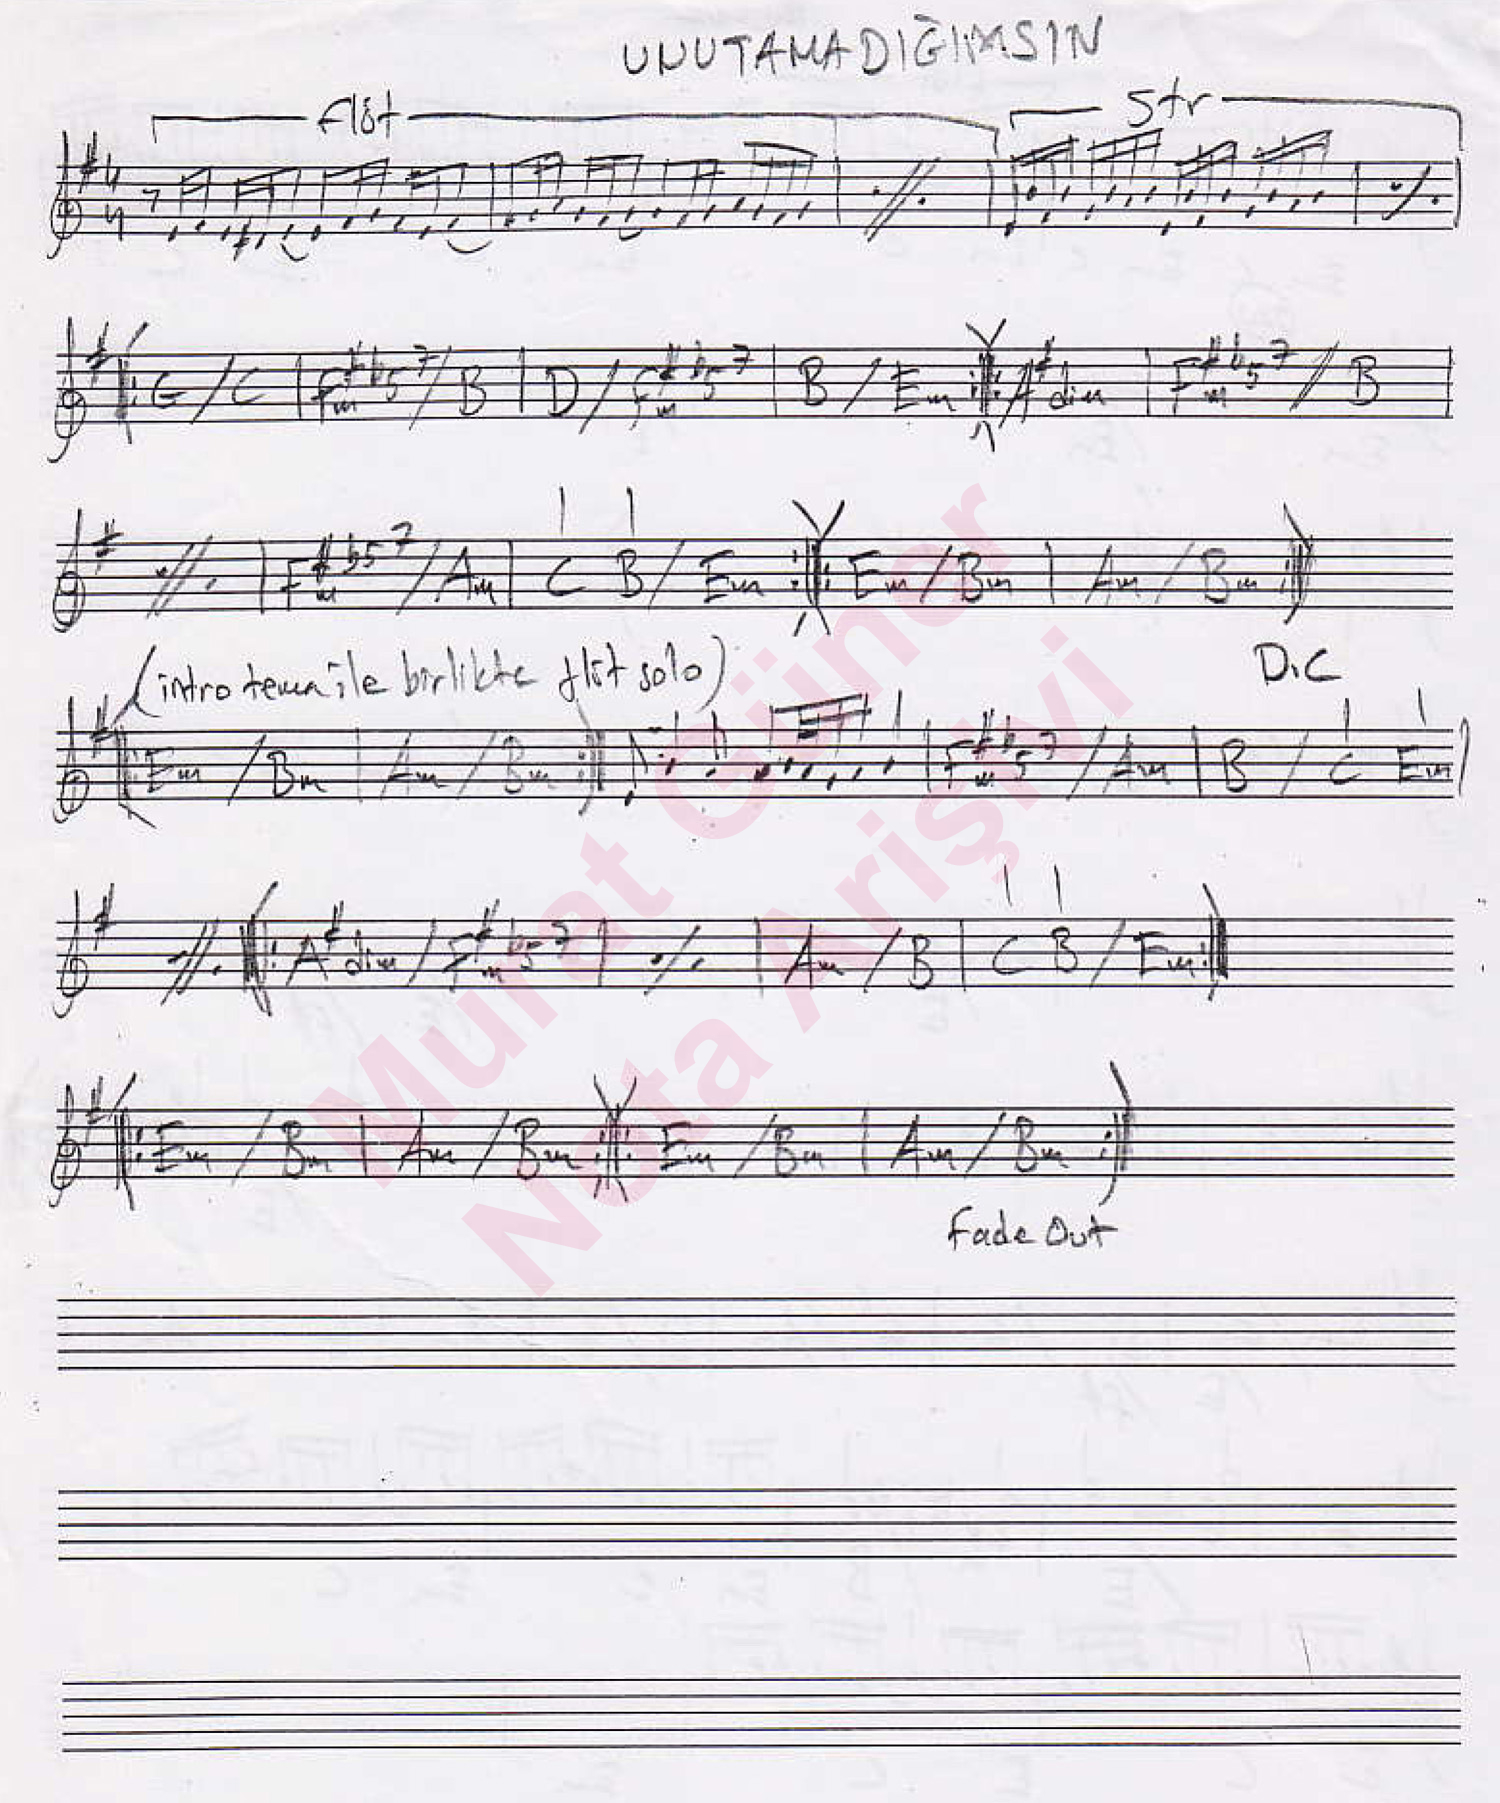 UNUTAMADIĞIMSIN
Flöt Str
4 4
G / C | F#m b5 7 / B | D / F#m b5 7 | B / Em :||: A# dim | F#m b5 7 // B |
F#m b5 7 / Am | C B / Em :||: Em / Bm | Am / Bm :||
(intro tema ile birlikte flöt solo) D.C
||: Em / Bm | Am / Bm :|| F#m b5 7 / Am | B / C Em |
||: A# dim / F#m b5 7 | Am / B | C B / Em :||
||: Em / Bm | Am / Bm :||: Em / Bm | Am / Bm :||
Fade Out
Murat Güner
Nota Arişvi